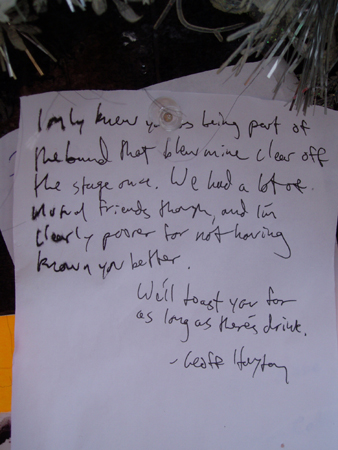 I only knew you as being part of
the band that blew mine clear off
the stage once. We had a lot of
mutual friends though, and I'm
clearly poorer for not having
known you better.
We'll toast you for
as long as there's drink.
- Geoff